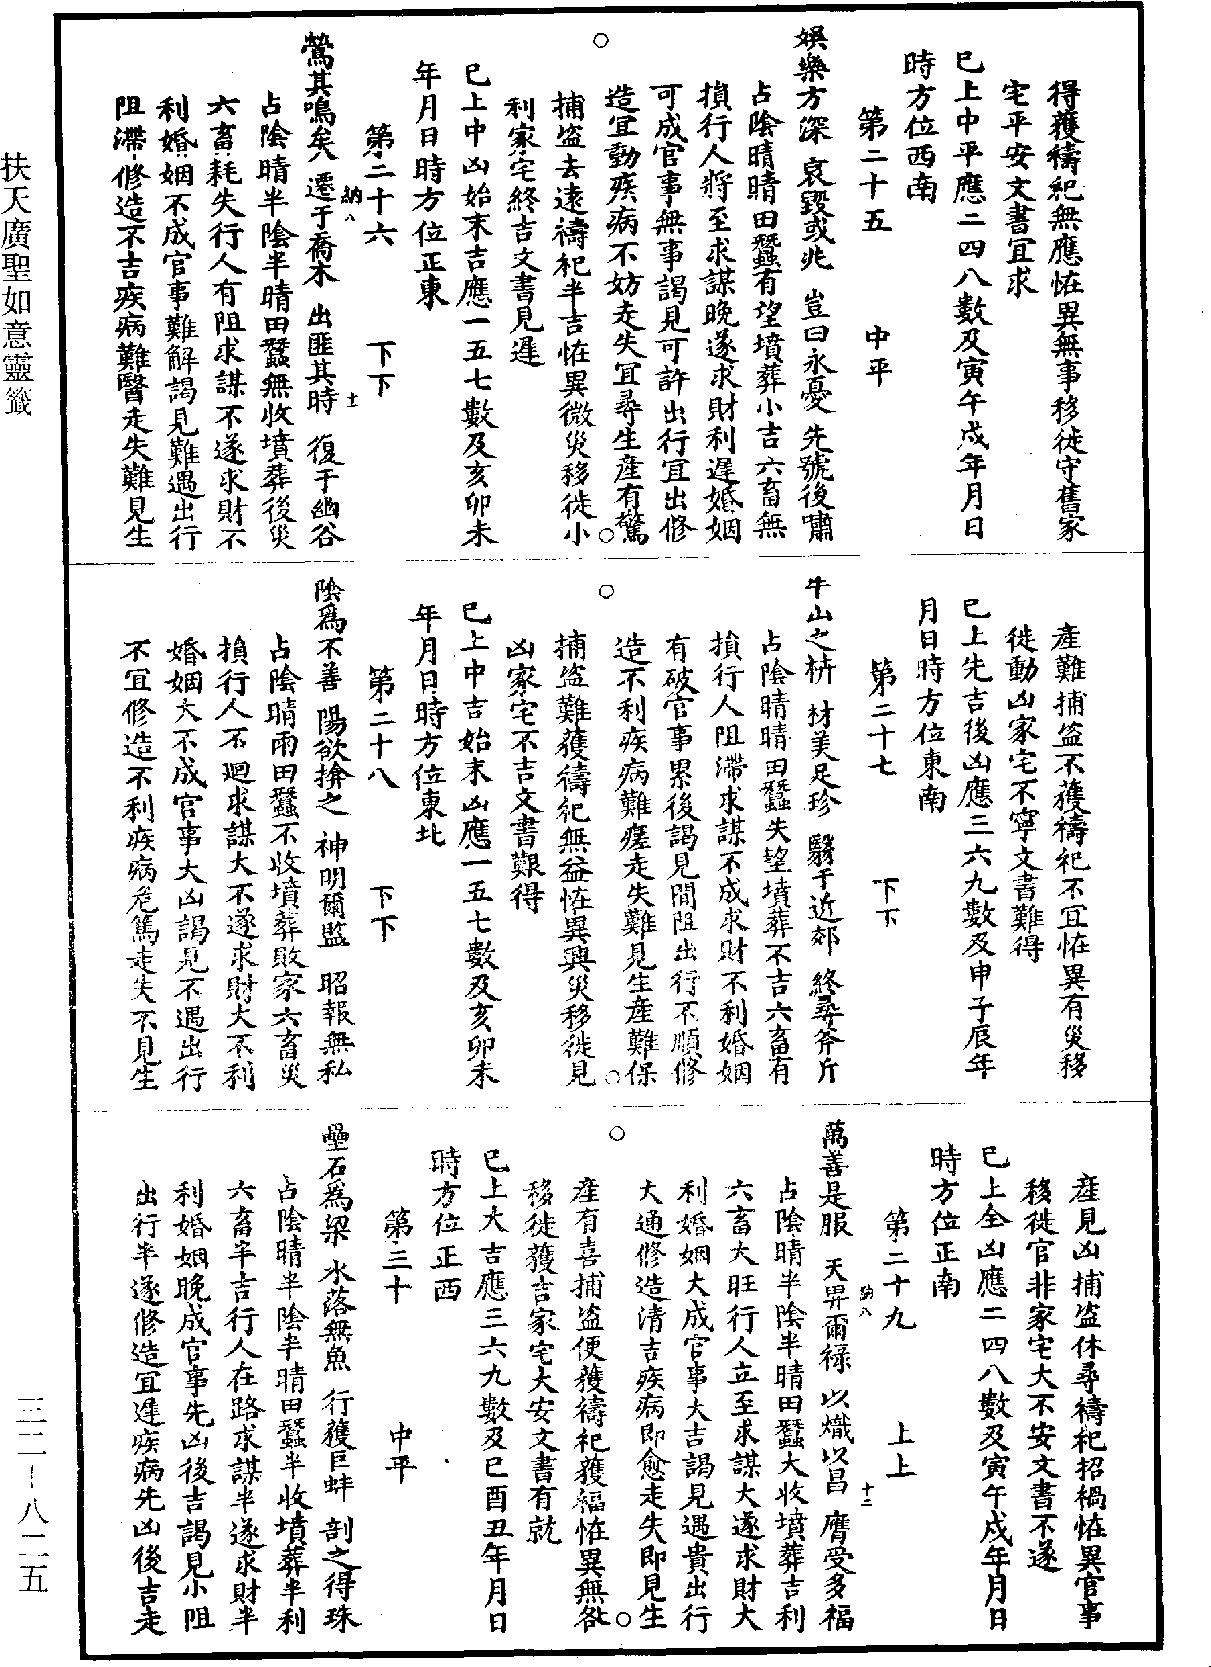 得獲禱祀無應恠異無事移徙守舊家
宅平安文書宜求
已上中平應二四八數及寅午戌年月日
時方位西南
第二十五　中平
娛樂方深　哀毀或兆　豈曰永憂　先號後嘯
占陰晴晴田蠶有望墳葬小吉六畜無
損行人將至求謀晚遂求財利遲婚姻
可成官事無事謁見可許出行宜出修
造宜動疾病不妨走失宜尋生産有驚
捕盜去遠禱祀半吉恠異微災移徙小
利家宅終吉文書見遲
已上中凶始末吉應一五七數及亥卯未
年月日時方位正東
第二十六　下下
鶯其鳴矣　遷于喬木　出匪其時　復于幽谷
納八　十一
占陰晴半陰半晴田蠶無收墳葬後災
六畜耗失行人有阻求謀不遂求財不
利婚姻不成官事難解謁見難遇出行
阻滯修造不吉疾病難醫走失難見生
産難捕盜不獲禱祀不宜恠異有災移
徙動凶家宅不寧文書難得
已上先吉後凶應三六九數及申子辰年
月日時方位東南
第二十七　下下
牛山之枿　材美足珍　翳于近郊　終尋斧斤
占陰晴晴田蠶失望墳葬不吉六畜有
損行人阻滯求謀不成求財不利婚姻
有破官事累後謁見間阻出行不順修
造不利疾病難瘥走失難見生産難保
捕盜難獲禱祀無益恠異興災移徙見
凶家宅不吉文書艱得
已上中吉始末凶應一五七數及亥卯未
年月日時方位東北
第二十八　下下
陰爲不善　陽欲揜之　神明爾監　昭報無私
占陰晴雨田蠶不收墳葬敗家六畜災
損行人不迴求謀大不遂求財大不利
婚姻大不成官事大凶謁見不遇出行
不宜修造不利疾病危篤走失不見生
産見凶捕盜休尋禱祀招禍恠異官事
移徙官非家宅大不安文書不遂
已上全凶應二四八數及寅午戌年月日
時方位正南
第二十九　上上
萬善是服　天畀爾祿　以熾以昌　膺受多福
納八　十二
占陰晴半陰半晴田蠶大收墳葬吉利
六畜大旺行人立至求謀大遂求財大
利婚姻大成官事大吉謁見遇貴出行
大通修造清吉疾病即愈走失即見生
産有喜捕盜便獲禱祀獲福恠異無咎
移徙獲吉家宅大安文書有就
已上大吉應三六九數及巳酉丑年月日
時方位正西
第三十　中平
壘石爲梁　水落無魚　行獲巨蚌　剖之得珠
占陰晴半陰半晴田蠶半收墳葬半利
六畜半吉行人在路求謀半遂求財半
利婚姻晚成官事先凶後吉謁見小阻
出行半遂修造宜遲疾病先凶後吉走
扶天廣聖如意靈籤
三二－八二五